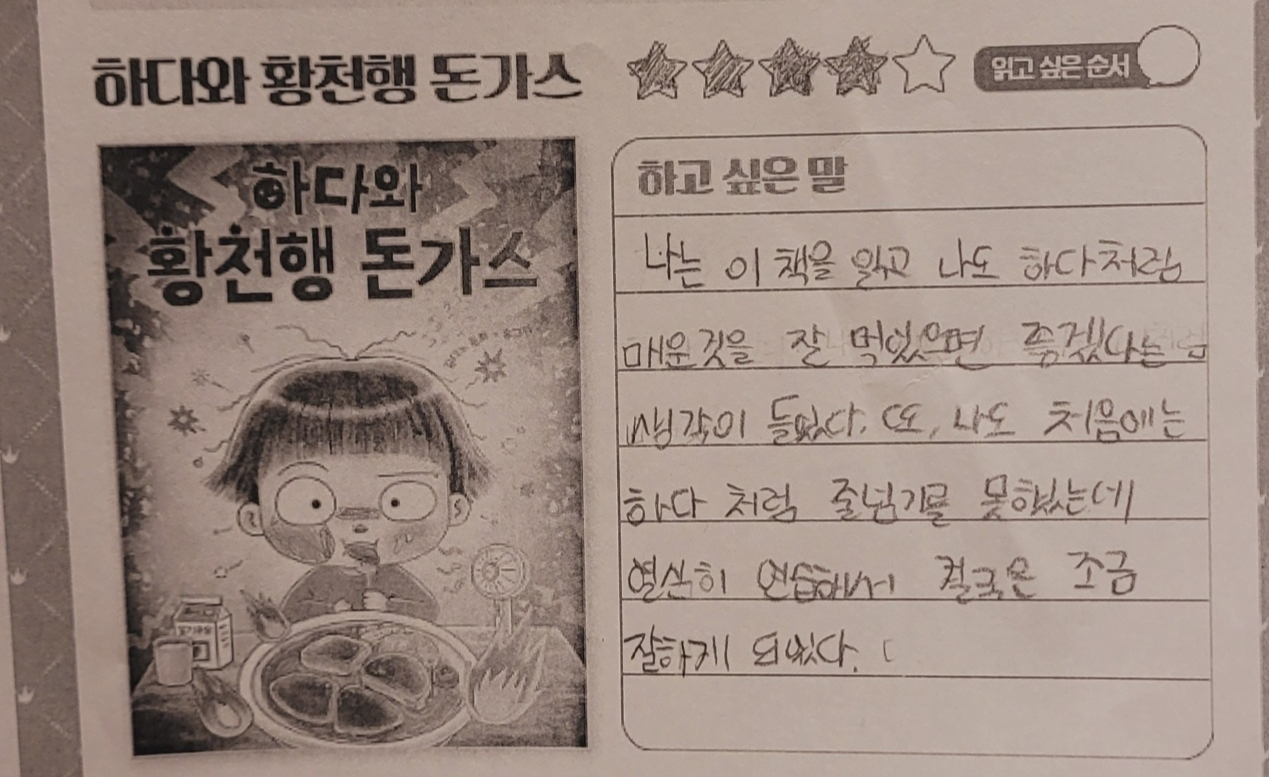 하다와 황천행 돈가스
읽고 싶은 순서
하다와
황천행 돈가스
하고 싶은 말
나는 이 책을 읽고 나도 하다처럼
매운것을 잘 먹었으면 좋겠다는
생각이 들었다. 또, 나도 처음에는
하다 처럼 줄넘기를 못했는데
열심히 연습해서 결국은 조금
잘하게 되었다.